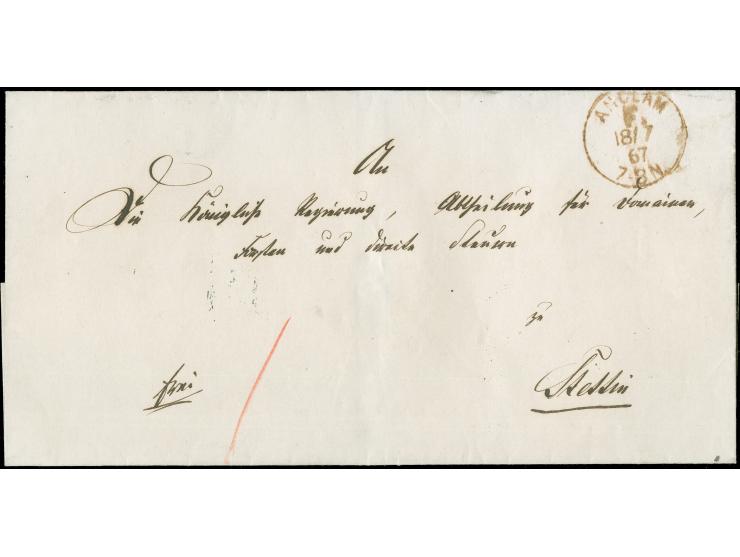 ANCLAM
18/7
67
7-8 N.
An
Die Königliche Regierung, Abtheilung für Domainen,
Forsten und direkte Steuern
zu
frei
Stettin